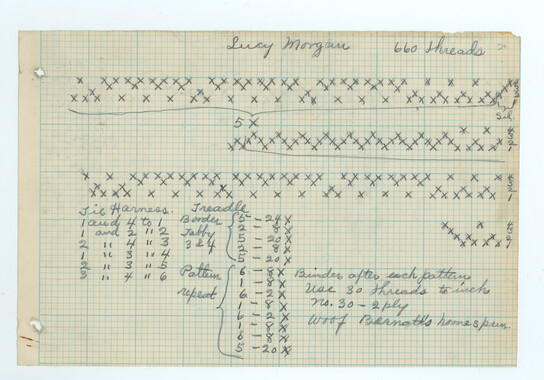 Lucy Morgan 660 threads
Sel.
5 X
Tie Harness. Treadle
1 and 4 to 1
1 and 2 " 2
2 " 4 " 3
1 " 3 " 4
2 " 3 " 5
3 " 4 " 6
Border
Tabby
3 & 4
5 - 24 X
2 - 8 X
5 - 20 X
2 - 8 X
5 - 20 X
Pattern
repeat
6 - 8 X
1 - 8 X
6 - 2 X
1 - 8 X
6 - 2 X
1 - 8 X
6 - 8 X
5 - 20 X
Binder after each pattern
Use 30 threads to inch
No. 30 - 2 ply
Woof Bernat's homespun